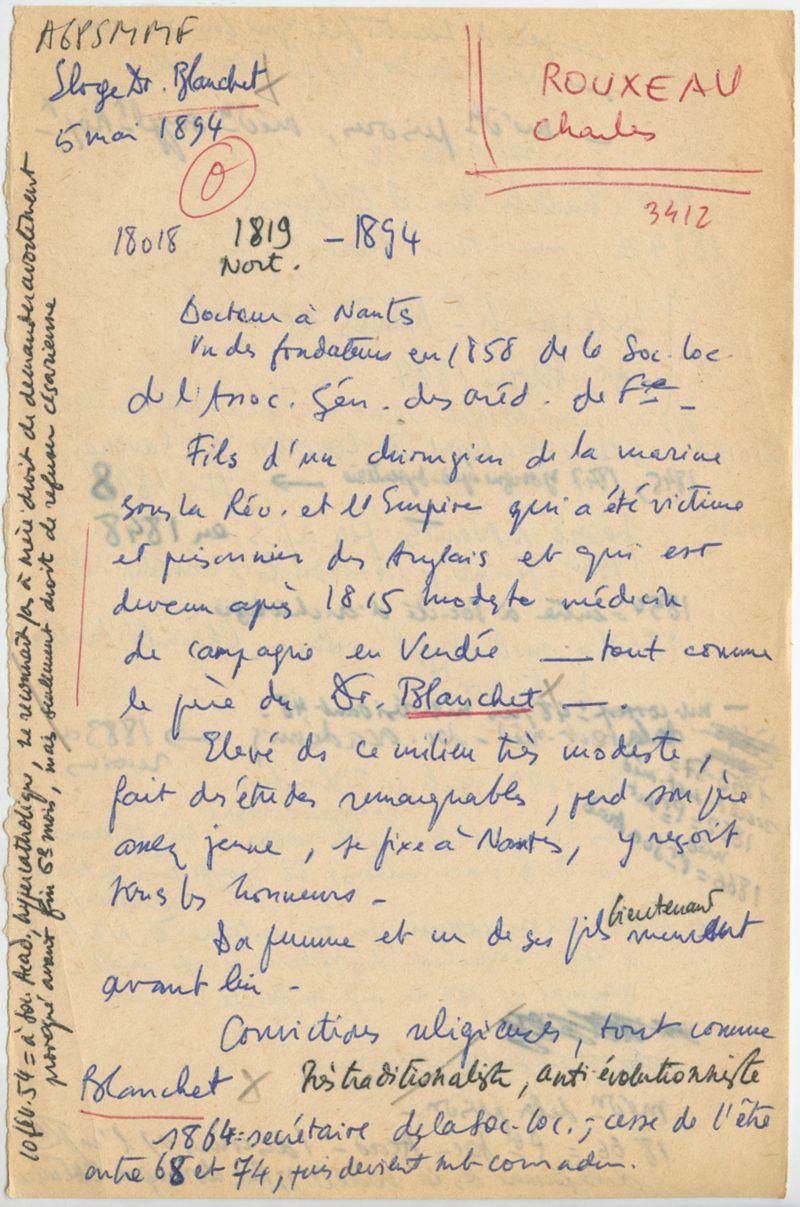 AGPSMMF
Eloge Dr. Blanchet
5 mai 1894
ROUXEAU
Charles
3412
0
18018 1819 – 1894
Nort.
Docteur à Nantes
Un des fondateurs en 1858 de la Soc. loc.
de l'Assoc. Gén. des Méd. de Fce –
Fils d'un chirurgien de la marine
sous la Rév. et l'Empire qui a été victime
et prisonnier des Anglais et qui est
devenu après 1815 modeste médecin
de campagne en Vendée — tout comme
le père du Dr. Blanchet — .
Elevé ds ce milieu très modeste,
fait des études remarquables, perd son père
assez jeune, se fixe à Nantes, y reçoit
tous les honneurs –
Sa femme et un de ses fils lieutenant meurent
avant lui –
Convictions religieuses, tout comme
Blanchet très traditionaliste, anti évolutionniste
1864 = secrétaire de la Soc. loc. ; cesse de l'être
entre 68 et 74, puis devient mb com admin.
10 fév. 54 = à Soc. Acad., hypercatholique, ne reconnaît pas à mère droit de demander avortement
provoqué avant fin 6e mois, mais seulement droit de refuser césarienne